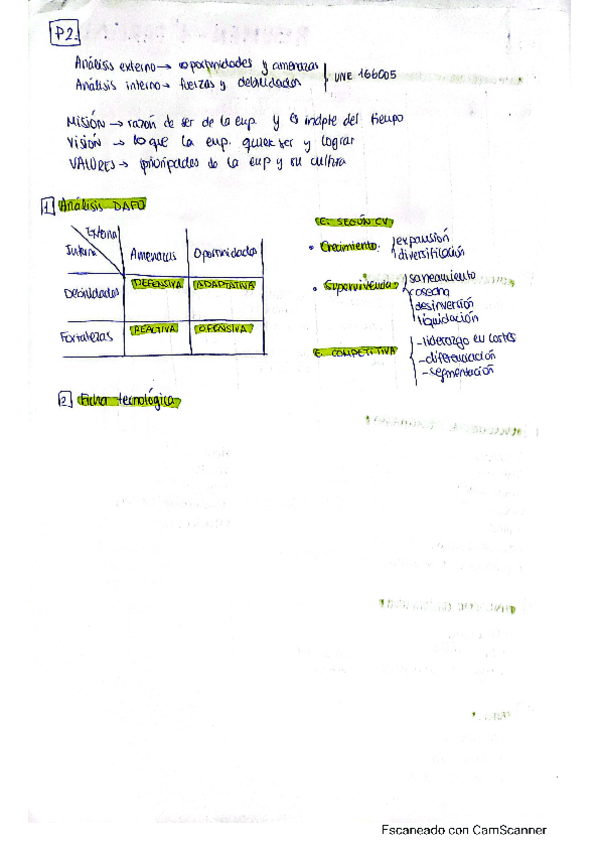 P2.
Análisis externo → oportunidades y amenazas
Análisis interno → fuerzas y debilidades
UNE 166005
MISIÓN → razón de ser de la emp. y es indpte del tiempo
VISIÓN → lo que la emp. quiere ser y lograr
VALORES → prioridades de la emp y su cultura
1 Análisis DAFO
Externo
Interno
Amenazas
Oportunidades
Debilidades
DEFENSIVA
ADAPTATIVA
Fortalezas
REACTIVA
OFENSIVA
E. SEGÚN CV
• Crecimiento: expansión
diversificación
• Supervivencia saneamiento
cosecha
desinversión
liquidación
E. COMPETITIVA - liderazgo en costes
- diferenciación
- segmentación
2 Ficha tecnológica
Escaneado con CamScanner